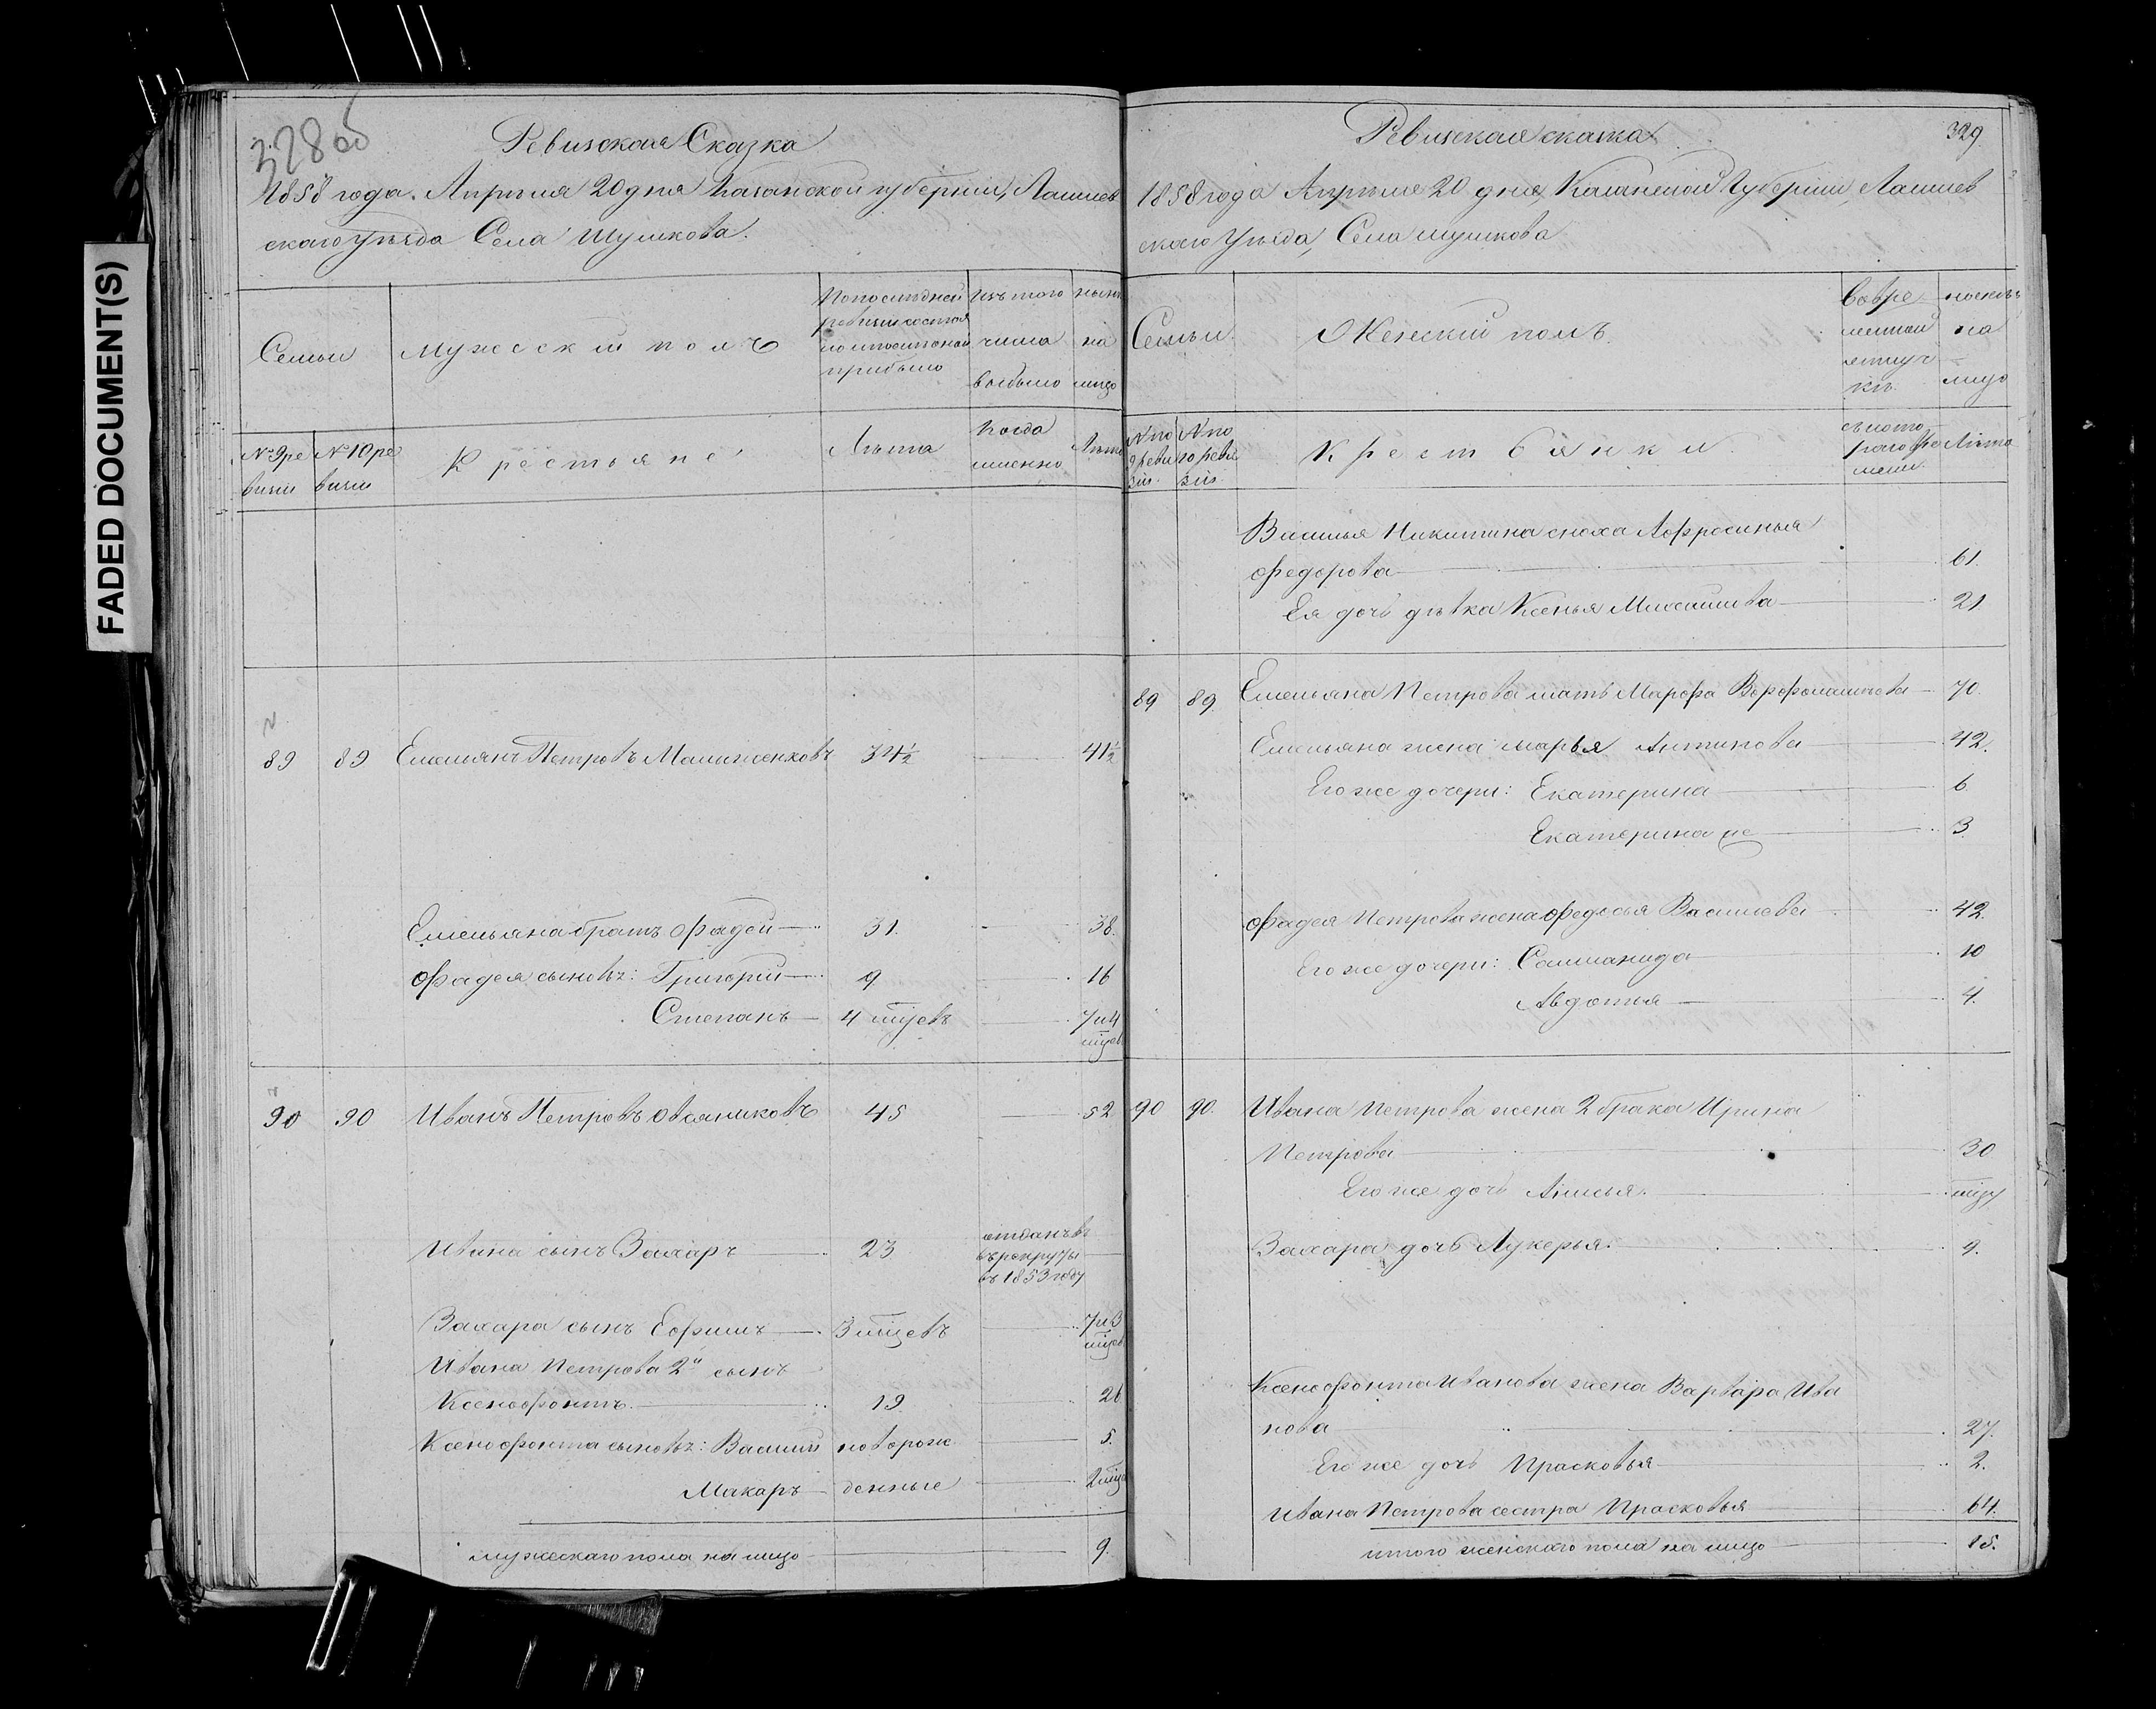 FADED DOCUMENT(S)
328 об
Ревизская Сказка
1858 года. Апрѣля 20 дня Казанской губерніи, Лаишев
скаго уѣзда Села Шумкова.
Семьи
Мужескій полъ
По последней
ревизіи состоя
ло и после оной
прибыло
Изъ того
числа
выбыло
ныне
на
лицо
№ 9 ре
визіи
№ 10 ре
визіи
Крестьяне
Лѣта
Когда
именно
Лѣта
89 89 Емельянъ Петровъ 34½ 41½
Емельяна братъ Фадей 31. 38.
Фадея сыновья: Григорій 9 16
Степанъ 4 мцевъ 7 и 4
мцев
90 90 Иванъ Петровъ Овсяниковъ 45 52
Ивана сынъ Захаръ 23 отданъ въ
рекруты
въ 1853 году
Захара сынъ Ефимъ 3 мцевъ 7 и 3
мцев
Ивана Петрова 2й сынъ
Ксенофонтъ 19 26
Ксенофонта сыновья: Василій новорож 5.
Макаръ денные 2 мца
мужескаго пола на лицо 9.
Ревизская сказка
329
1858 года Апрѣля 20 дня, Казанской Губерніи, Лаишев
скаго Уѣзда, Села Шумкова
Семьи
Женскій полъ.
Вовре
менной
отлуч
кѣ.
ныне
на
лицо
№ по
9 реви
зіи.
№ по
10 реви
зіи.
Крестьянки
съ кото
раго вре
мени.
Лѣта
Василья Никитина сноха Афросинья
Федорова 61.
Ея дочь дѣвка Ксенья 21
89 89. Емельяна Петрова мать Марфа 70.
Емельяна жена Марья Антипова 42.
Его же дочери: Екатерина 6
Екатерина же 3
Фадея Петрова жена Федосья Васильева 42.
Его же дочери: 10
Авдотья 4.
90 90. Ивана Петрова жена 2 брака Ирина
Петрова 30
Его же дочь Анисья. мцу
Захара дочь Лукерья. 9.
Ксенофонта Иванова жена Варвара Ива
нова 27.
Его же дочь Прасковья 2.
Ивана Петрова сестра Прасковья 64.
итого женскаго пола на лицо 15.